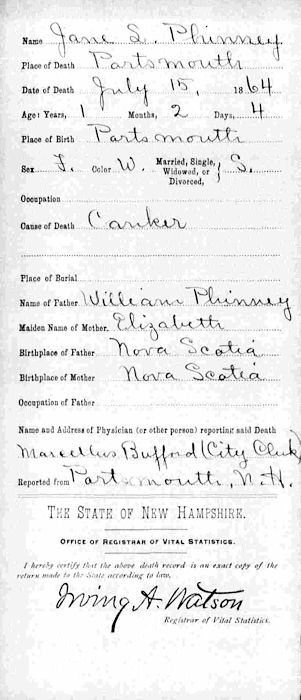 Name Jane L. Phinney
Place of Death Portsmouth
Date of Death July 15, 1864
Age: Years, 1 Months, 2 Days, 4
Place of Birth Portsmouth
Sex F. Color W. Married, Single, Widowed, or Divorced, } S.
Occupation
Cause of Death Canker
Place of Burial
Name of Father William Phinney
Maiden Name of Mother, Elizabeth
Birthplace of Father Nova Scotia
Birthplace of Mother Nova Scotia
Occupation of Father
Name and Address of Physician (or other person) reporting said Death
Marcellus Bufford (City Clerk)
Reported from Portsmouth, N.H.
THE STATE OF NEW HAMPSHIRE.
OFFICE OF REGISTRAR OF VITAL STATISTICS.
I hereby certify that the above death record is an exact copy of the
return made to the State according to law,
Irving A. Watson
Registrar of Vital Statistics.